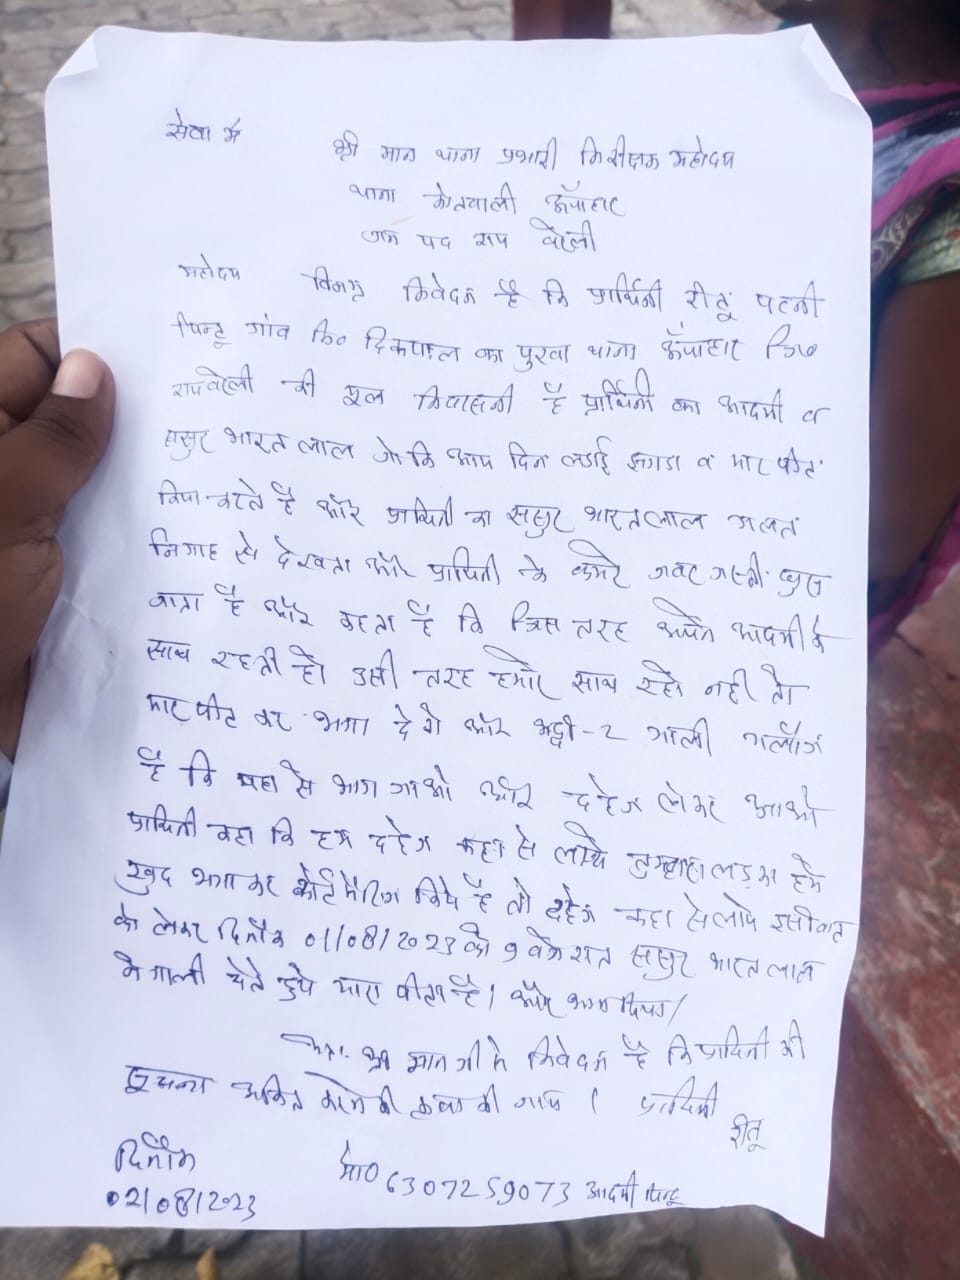 सेवा में
श्री मान थाना प्रभारी निरीक्षक महोदय
थाना कोतवाली ऊँचाहार
जन पद राय बरेली
महोदय विनम्र निवेदन है कि प्रार्थिनी रीतू पत्नी
पिन्टू गांव नि० दिकपाल का पुरवा थाना ऊँचाहार जि०
रायबरेली की मूल निवासनी है प्रार्थिनी का आदमी व
ससुर भारत लाल जो कि आय दिन लडाई झगडा व मार पीट
किया करते है और प्रार्थिनी का ससुर भारतलाल गलत
निगाह से देखता और प्रार्थिनी के कमरे जबरजस्ती घुस
जाता है और कहता है कि जिस तरह अपने आदमी के
साथ रहती हो उसी तरह हमारे साथ रहो नही तो
मार पीट कर भगा देगे और भद्दी-2 गाली गलौज
है कि यहा से भाग जाओ और दहेज लेकर आओ
प्रार्थिनी कहा कि हम दहेज कहा से लाये तुम्हारा लड़का हमे
खुद भगा कर कोर्ट मैरिज किये है तो दहेज कहा से लाये इसी बात
को लेकर दिनाँक 01/08/2023 को 9 बजे रात ससुर भारत लाल
ने गाली देते हुये मारा पीटा है। और भगा दिया।
अतः श्री मान जी से निवेदन है कि प्रार्थिनी की
सूचना अंकित करने की कृपा की जाय। प्रार्थिनी
रीतू
दिनाँक
02/08/2023
मो0 6307259073 आदमी पिन्टू